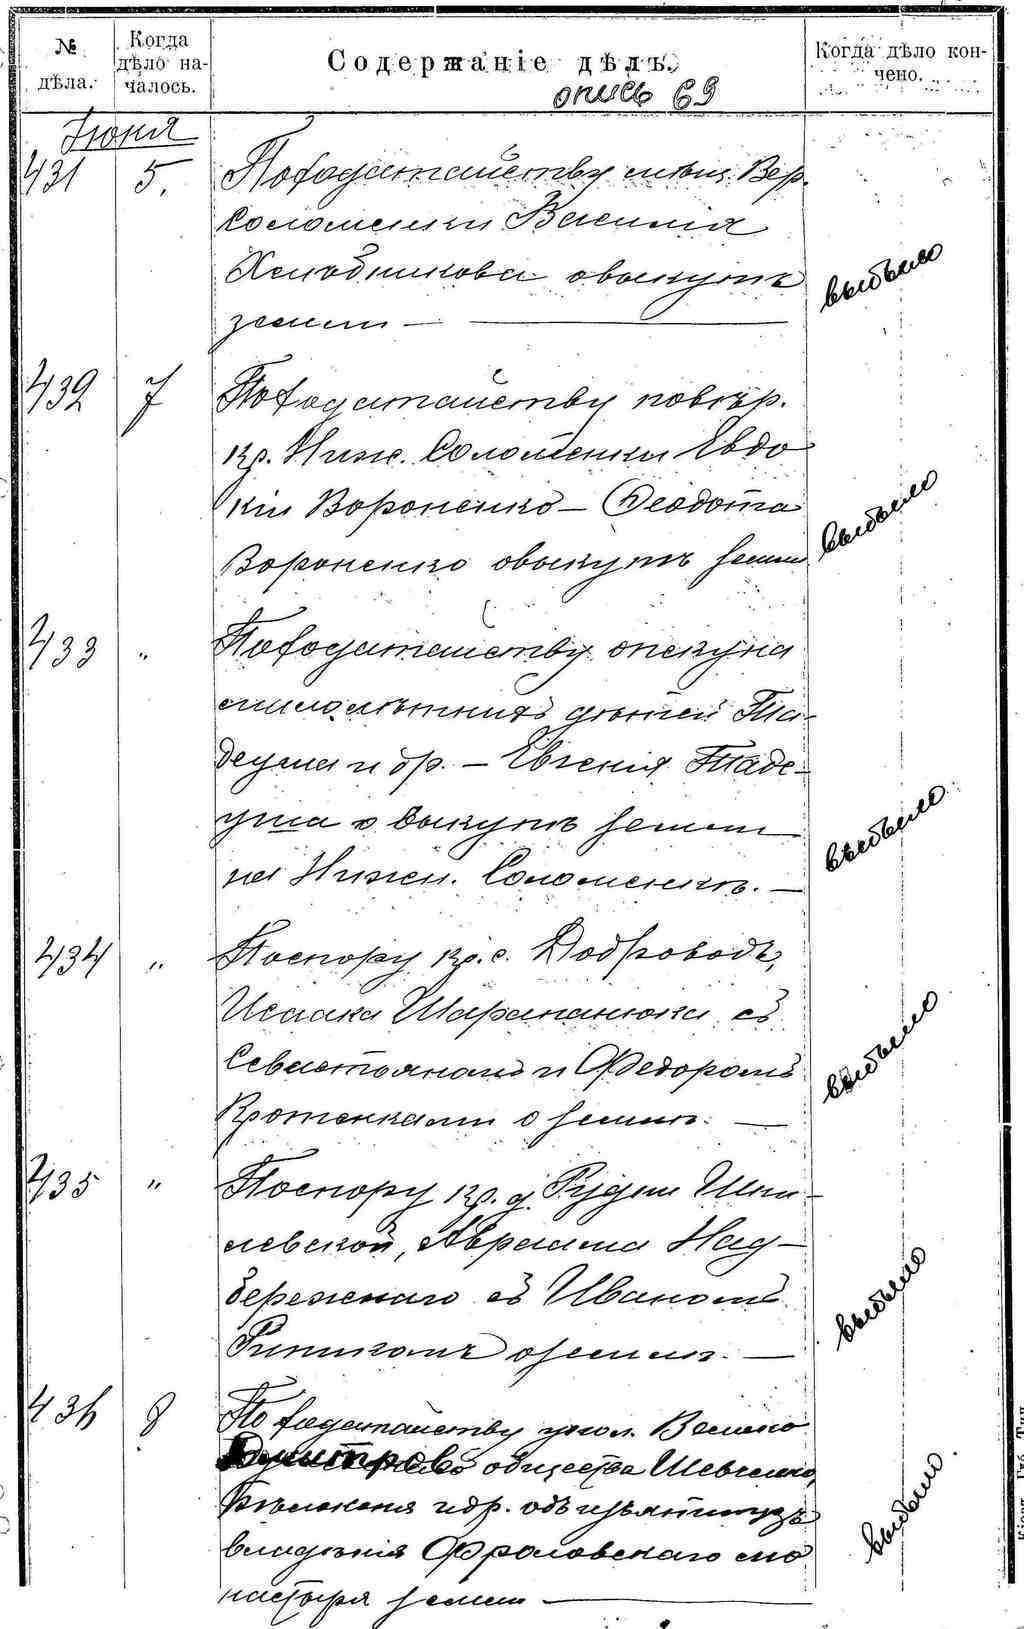 № дѣла.
Когда дѣло на-
чалось.
Содержаніе дѣлъ.
Когда дѣло кон-
чено.
опись 69
Іюня
431 5. По ходатайству мѣщ. Вер.
Соломенки Василія
Холодникова о выкупѣ
земли —
выбыло
432 7 По ходатайству повѣр.
кр. Ниж. Соломенки Евдо
кіи Вороненко — Ѳеодота
Вороненко о выкупѣ земли
выбыло
433 " По ходатайству опекуна
малолѣтнихъ дѣтей Та-
деуша и др. — Евгенія Таде-
уша о выкупѣ земли
на Нижн. Соломенкѣ. —
выбыло
434 " По спору кр. с. Доброводъ,
Исаака Шарапанюка съ
Севастояномъ и Ѳедоромъ
Кротенками о землѣ. —
выбыло
435 " По спору кр. д. Рудни Шпи-
левской, Авраама Над-
бережнаго съ Иваномъ
о землѣ. —
выбыло
436 8 По ходатайству упол. Велико
Дмитров общества Шевченко,
и др. объ изъятіи изъ
владѣнія Фроловскаго мо
настыря земли —
выбыло